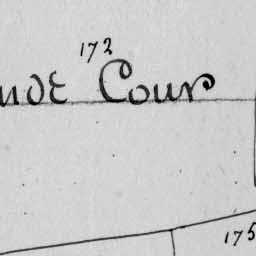 172
nde Cour
175